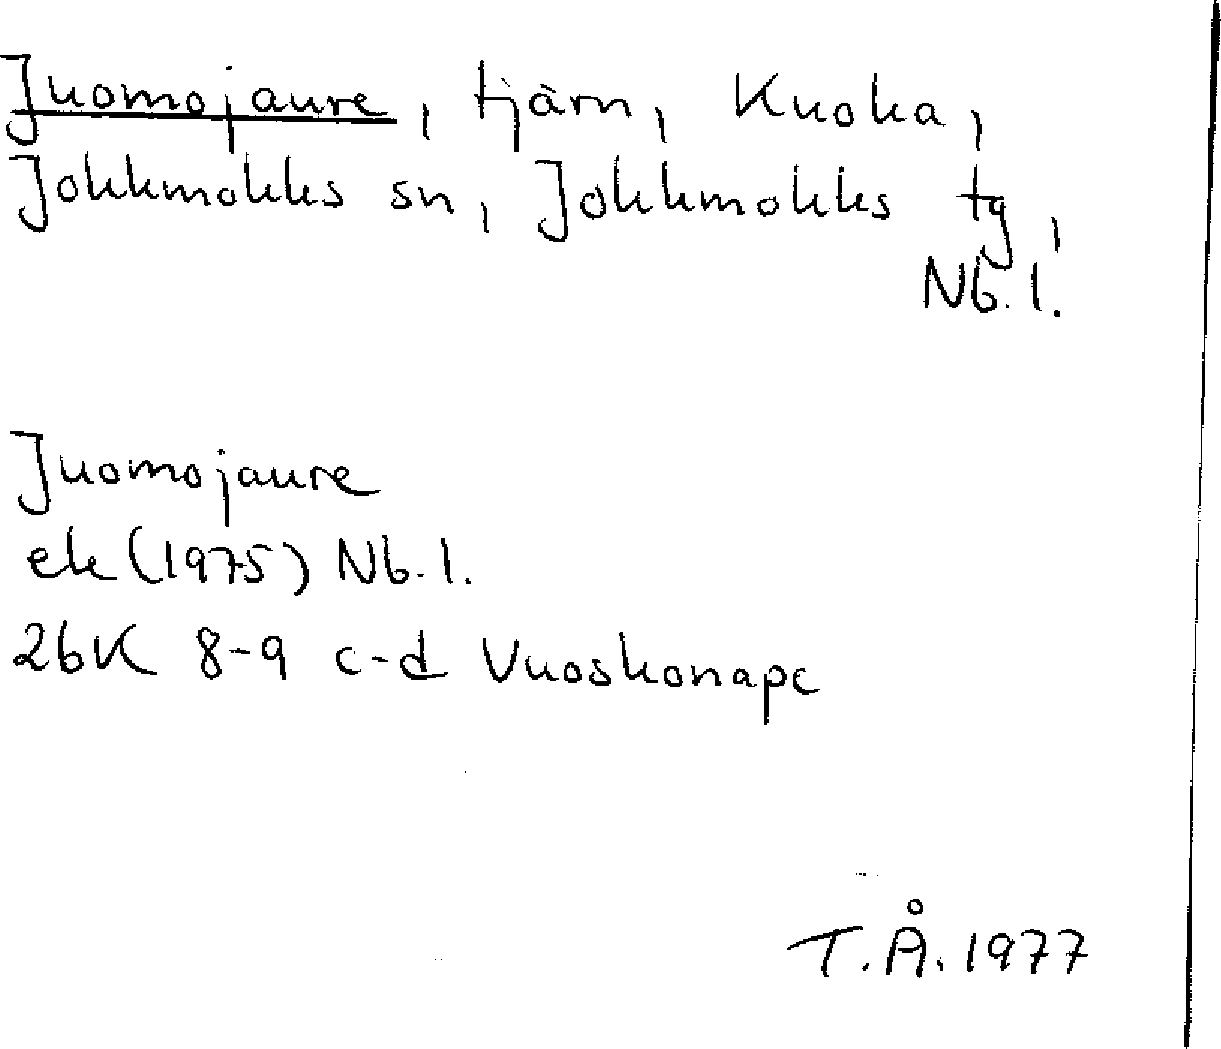 Juomojaure, tjärn, Kuoka,
Jokkmokks sn, Jokkmokks tg,
Nb. l.
Juomojaure
ek (1975) Nb. l.
26K 8-9 c-d Vuoskonape
T.Å. 1977